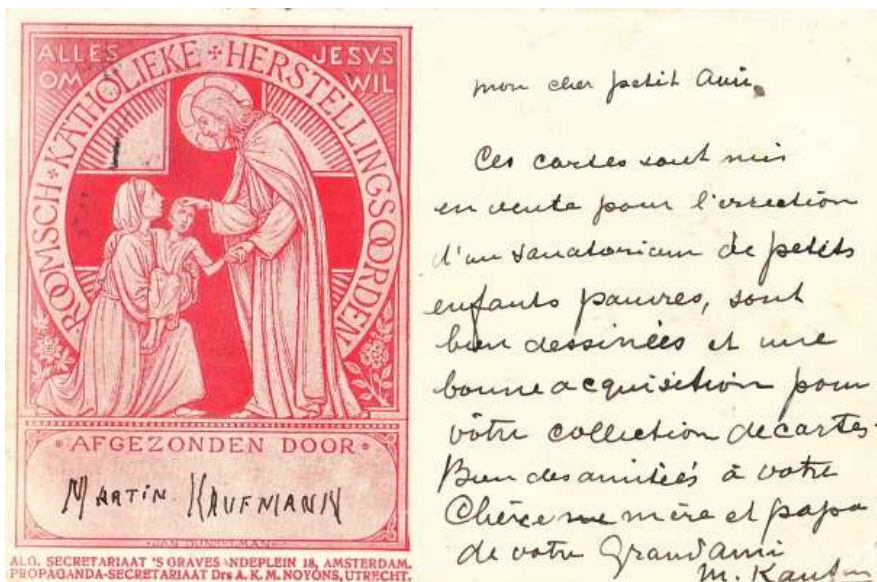 ALLES OM
JESVS WIL
ROOMSCH · KATHOLIEKE HERSTELLINGSOORDEN
AFGEZONDEN DOOR
MARTIN KAUFMANN
ALG. SECRETARIAAT 'S GRAVES NDEPLEIN 18, AMSTERDAM.
PROPAGANDA-SECRETARIAAT Drs A. K. M. NOYONS, UTRECHT.
mon cher petit Ami,
Ces cartes sont mis
en vente pour l'errection
d'un sanatorium de petits
enfants pauvres, sont
bien dessinées et une
bonne acquisition pour
vôtre collection de cartes.
Bien des amitiés à votre
Chère mère et papa
de votre Grand ami
M. Kaufm